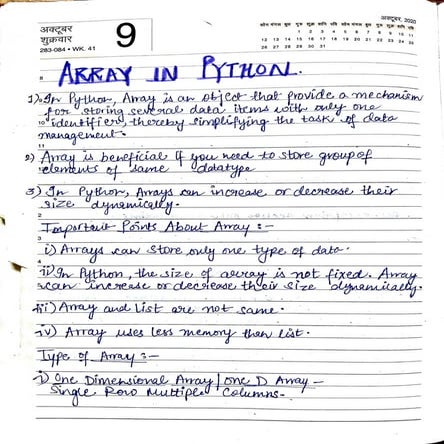 अक्टूबर
शुक्रवार
283-084 • WK. 41
9
अक्टूबर, 2020
1 2 3 4 5 6 7 8 9 10 11
12 13 14 15 16 17 18 19 20 21 22 23 24 25
26 27 28 29 30 31
ARRAY IN PYTHON.
1) In Python, Array is an object that provide a mechanism
for storing several data items with only one
identifier, thereby simplifying the task of data
management.
2) Array is beneficial if you need to store group of
elements of same datatype
3) In Python, Arrays can increase or decrease their
size dynamically.
Important Points About Array :-
i) Arrays can store only one type of data.
ii) In Python, the size of array is not fixed. Array
can increase or decrease their size dynamically.
iii) Array and List are not same.
iv) Array uses less memory then list.
Type of Array :-
i) One Dimensional Array | one D Array -
Single Row Multiple Columns-